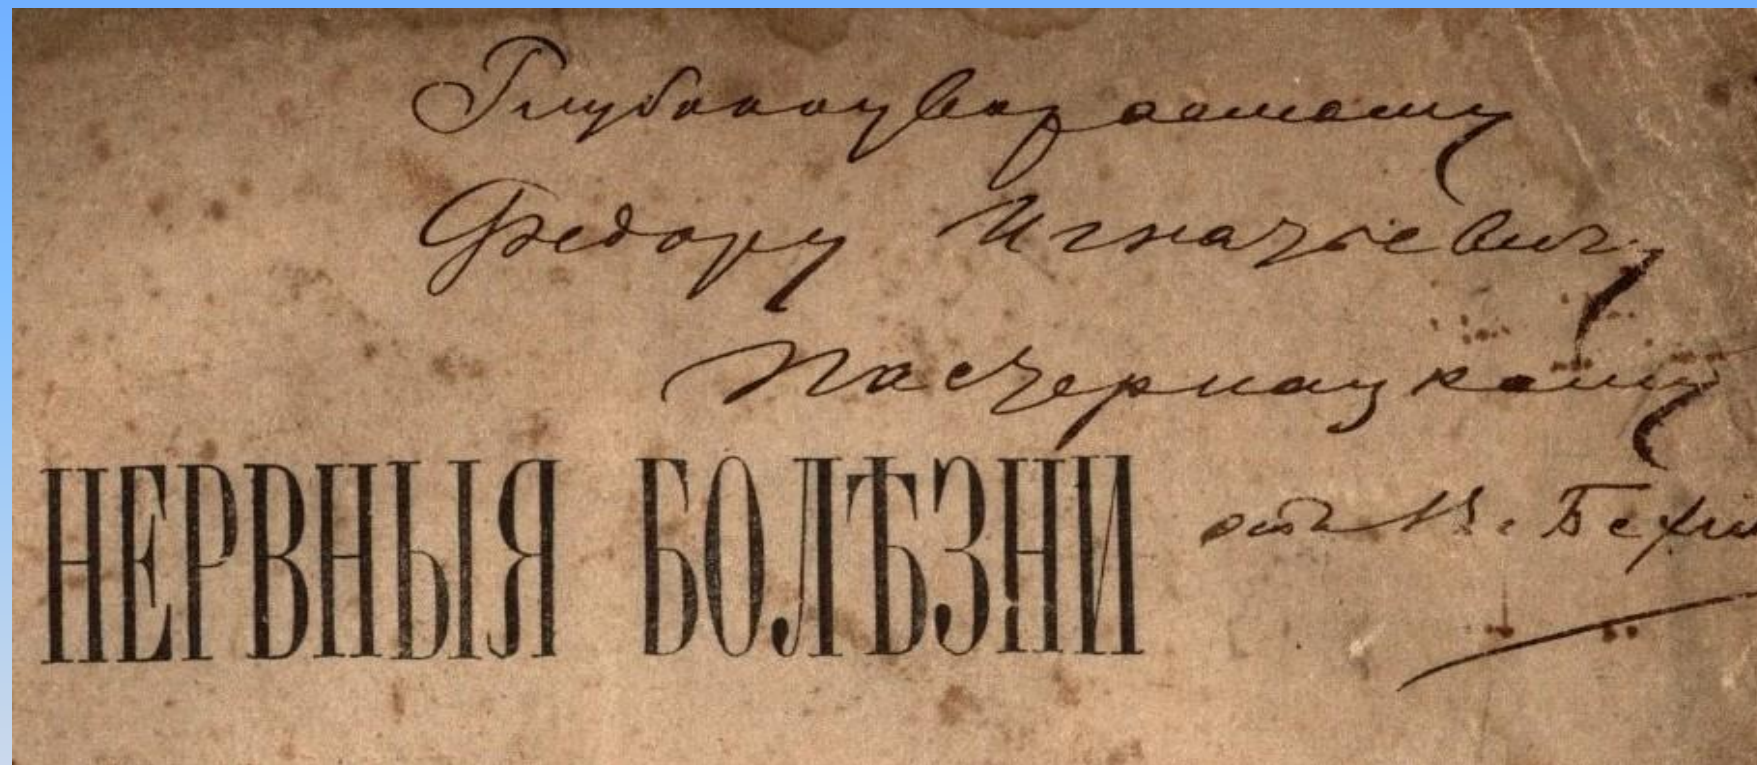 Глубокоуважаемому
Федору Игнатьевичу
Пастернацкому
НЕРВНЫЯ БОЛѢЗНИ
отъ В. Бехт